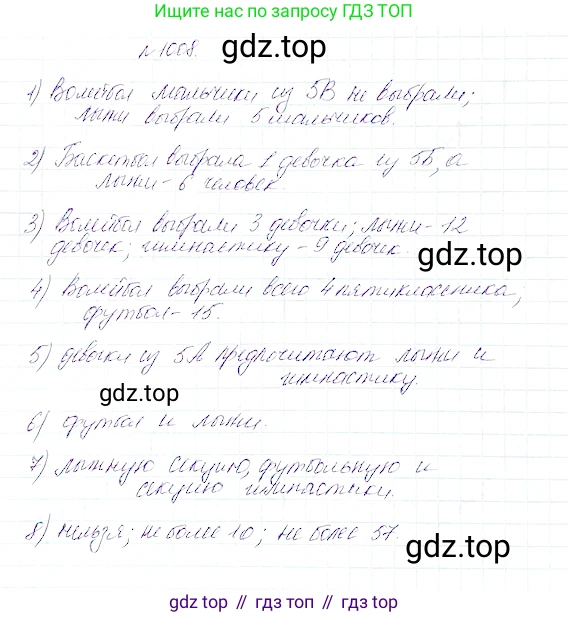 Ищите нас по запросу ГДЗ ТОП
№1008.
gdz.top
1) Волейбол мальчики из 5В не выбрали;
лыжи выбрали 5 мальчиков.
2) Баскетбол выбрала 1 девочка из 5Б, а
лыжи - 6 человек.
3) Волейбол выбрали 3 девочки; лыжи - 12
девочек; гимнастику - 9 девочек.
gdz.top
4) Волейбол выбрали всего 4 пятиклассника;
футбол - 15.
5) девочки из 5А предпочитают лыжи и
гимнастику.
gdz.top
6) футбол и лыжи.
7) лыжную секцию, футбольную и
секцию гимнастики.
8) нельзя; не более 10; не более 57.
gdz.top
gdz top // гдз топ // гдз top